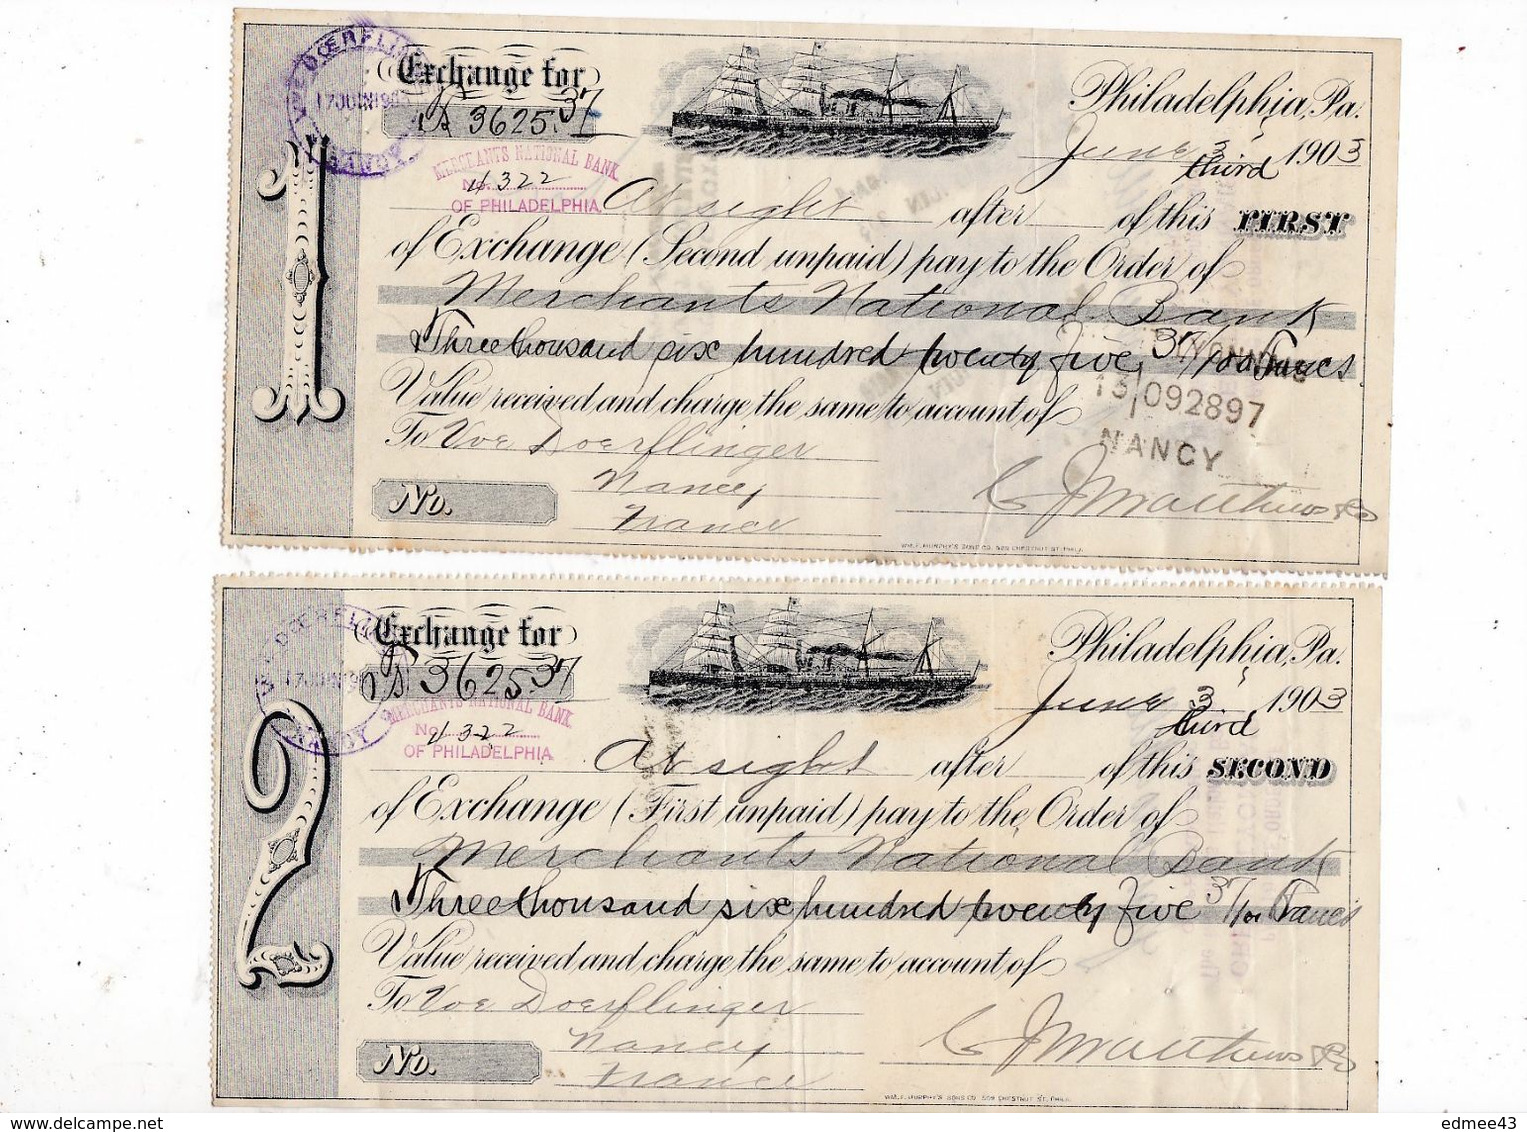 Exchange for
3625.37
Philadelphia, Pa.
June 3, 1903
third
VVE DŒRFLIN
17 JUIN 190
NANCY
MERCHANTS NATIONAL BANK
No. 4322
OF PHILADELPHIA
At sight after of this FIRST
of Exchange (Second unpaid) pay to the Order of
Merchants National Bank
Three thousand six hundred twenty five 37/100 Francs
Value received and charge the same to account of
To Vve Doerflinger
Nancy
France
No.
LYONNAIS
13/092897
NANCY
C J Matthews & Co
WM. F. MURPHY'S SONS CO. 509 CHESTNUT ST. PHILA.
Exchange for
3625.37
Philadelphia, Pa.
June 3, 1903
third
17 JUIN 19
MERCHANTS NATIONAL BANK
No. 4322
OF PHILADELPHIA
At sight after of this SECOND
of Exchange (First unpaid) pay to the Order of
Merchants National Bank
Three thousand six hundred twenty five 37/100 Francs
Value received and charge the same to account of
To Vve Doerflinger
Nancy
France
No.
C J Matthews & Co
WM. F. MURPHY'S SONS CO. 509 CHESTNUT ST. PHILA.
edmee43